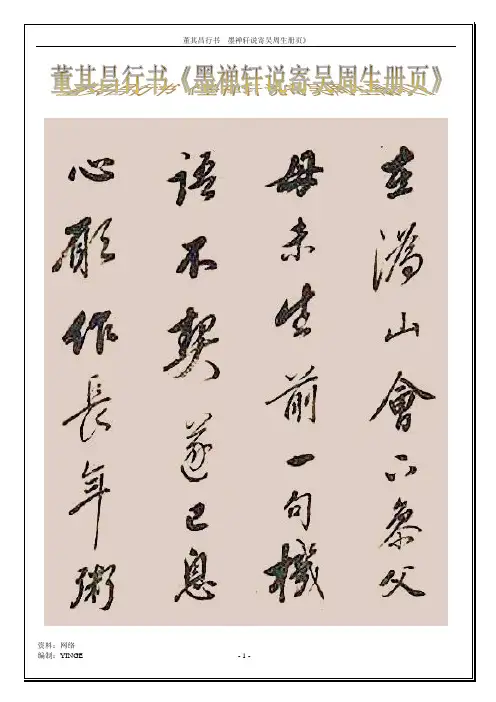 董其昌行书 墨禅轩说寄吴周生册页》
董其昌行书《墨禅轩说寄吴周生册页》
在溈山會下叅父
母未生前一句機
語不契遂已息
心願作長年粥
资料：网络
编制：YINGE - 1 -